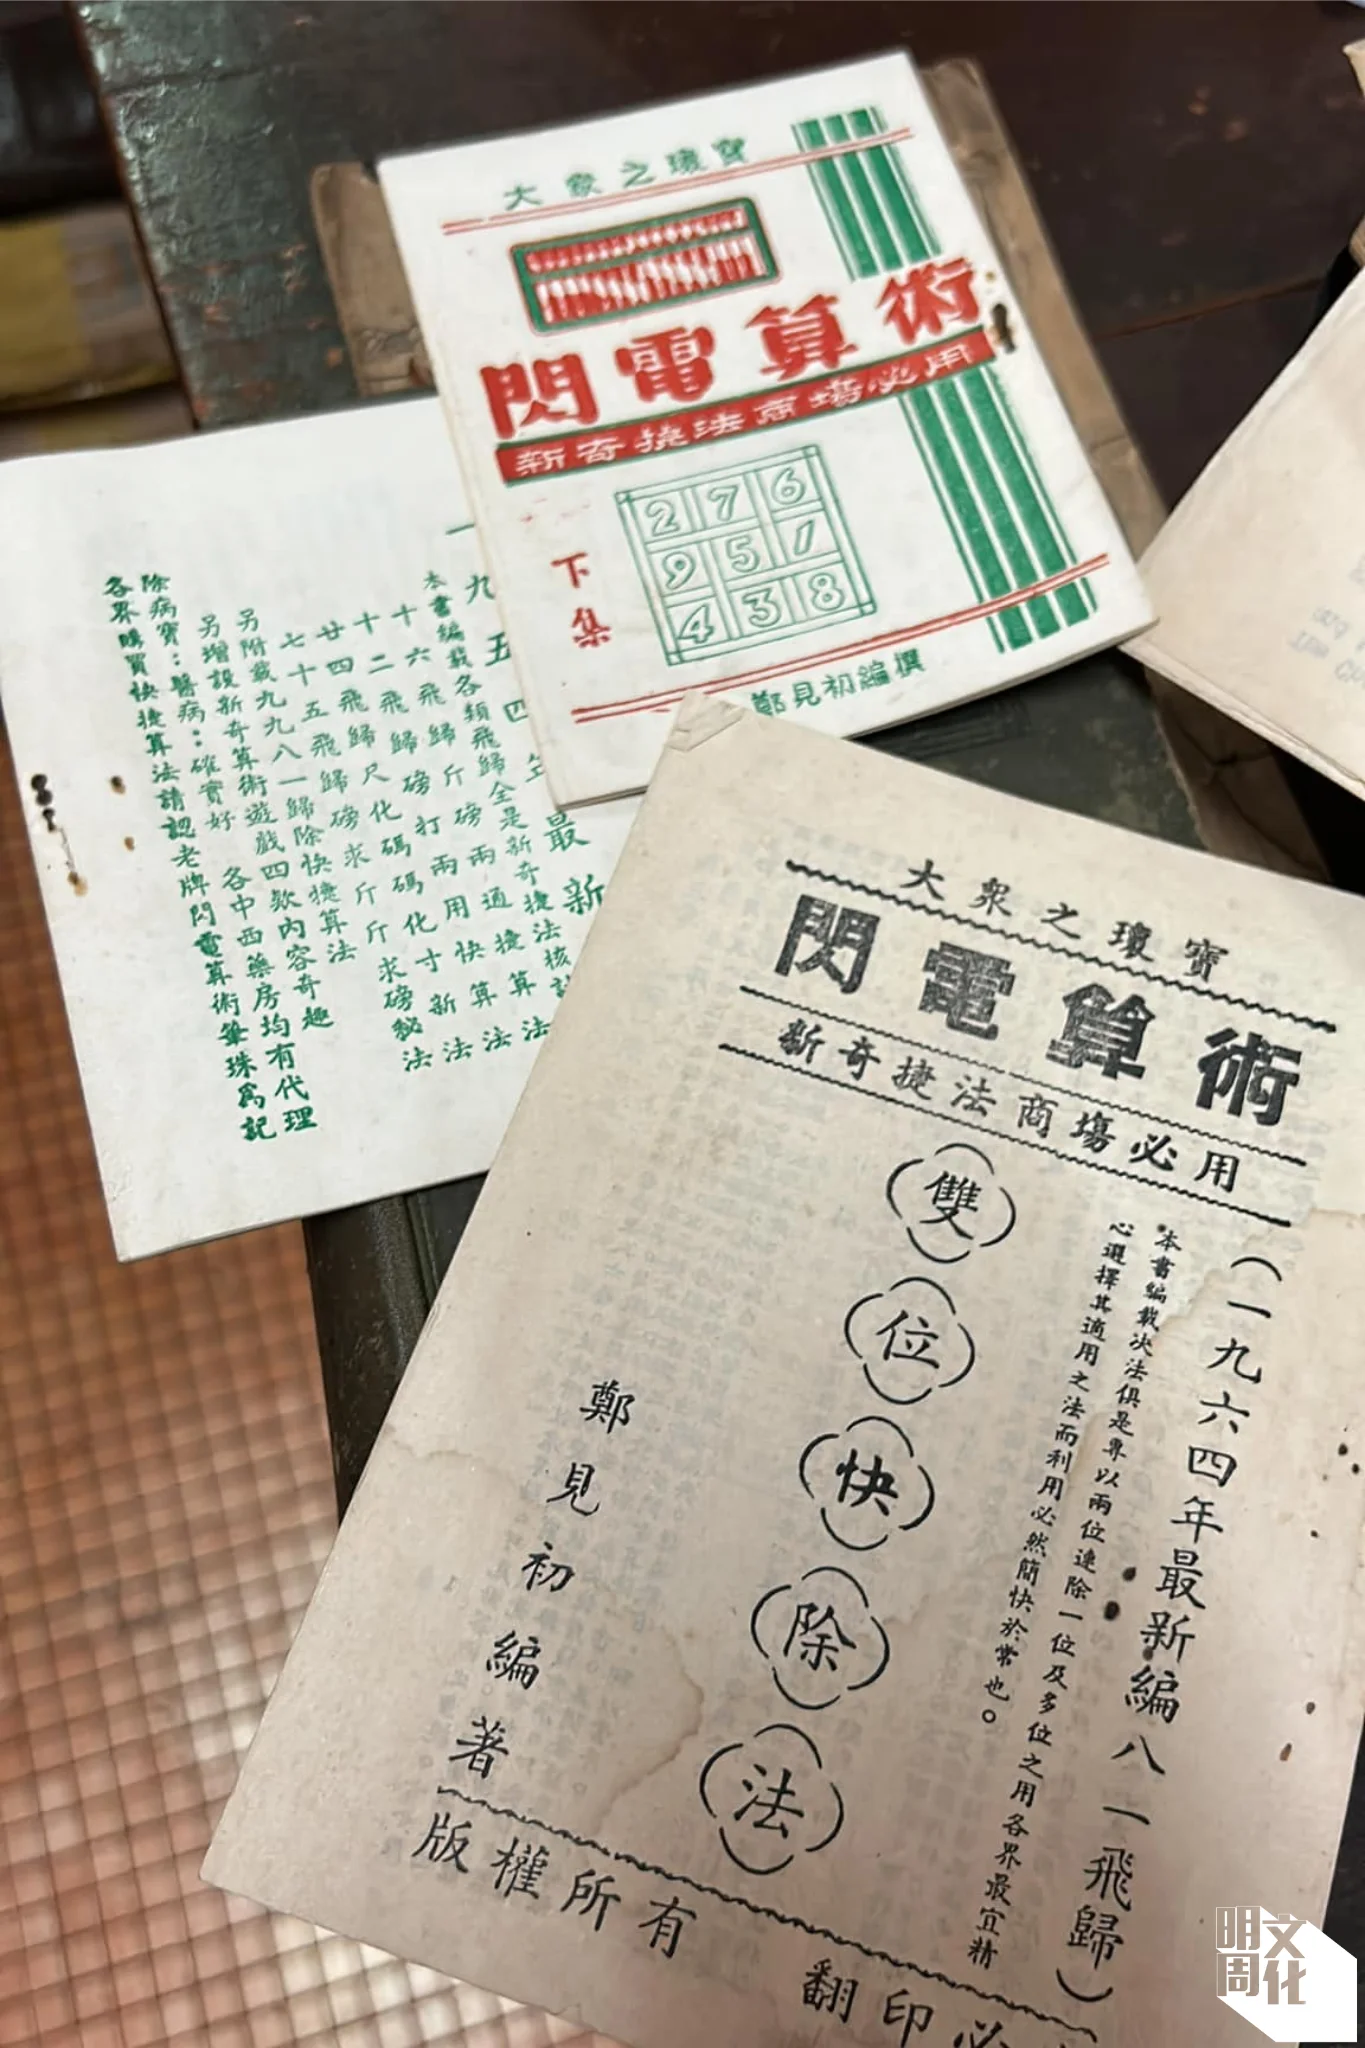 大眾之瓊寶
閃電算術
新奇捷法商塲必用
2 7 6
9 5 1
4 3 8
下集
鄭見初編撰
一九五四年最新
本書編載各類飛歸全是新奇捷法核
十六飛歸斤磅兩通捷算法
十二飛歸磅打兩用快算法
廿四飛歸尺化碼碼化寸新法
七十五飛歸磅求斤斤求磅秘法
另附載九九八一歸除快捷算法
另增設新奇算術遊戲四欵內容奇趣
除病寶：醫病：確實好 各中西藥房均有代理
各界購買快捷算法請認老牌閃電算術筆珠為記
大眾之瓊寶
閃電算術
新奇捷法商塲必用
（一九六四年最新編八一飛歸）
本書編載決法俱是專以兩位連除一位及多位之用各界最宜精
心選擇其適用之法而利用必然簡快於常也。
雙位快除法
鄭見初編著
版權所有
翻印必
明周文化